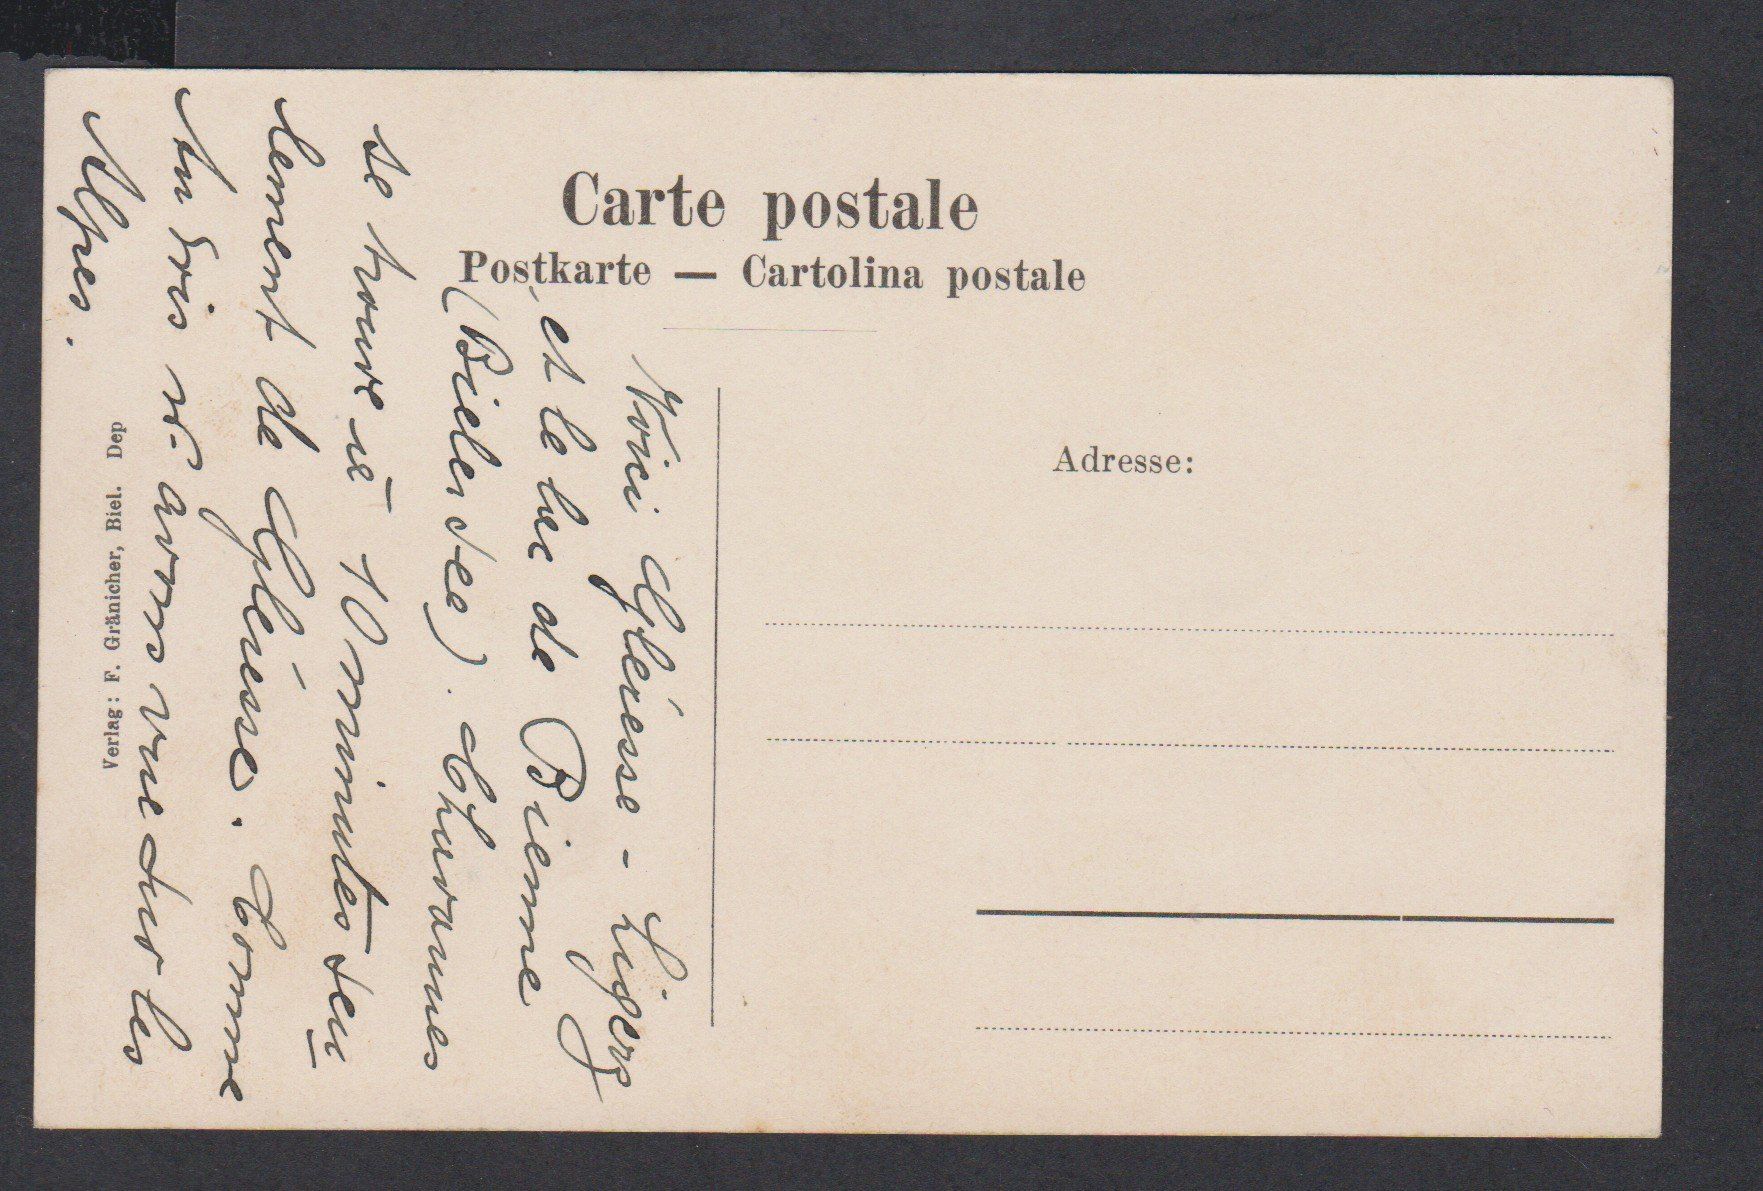 Carte postale
Postkarte — Cartolina postale
Adresse:
Voici Gléresse - Ligerz
et le lac de Bienne
(Bielersee). Chavannes
se trouve à 10 minutes seu
lement de Gléresse. Comme
n. avons vue sur les
Alpes.
Verlag: F. Gränicher, Biel. Dep